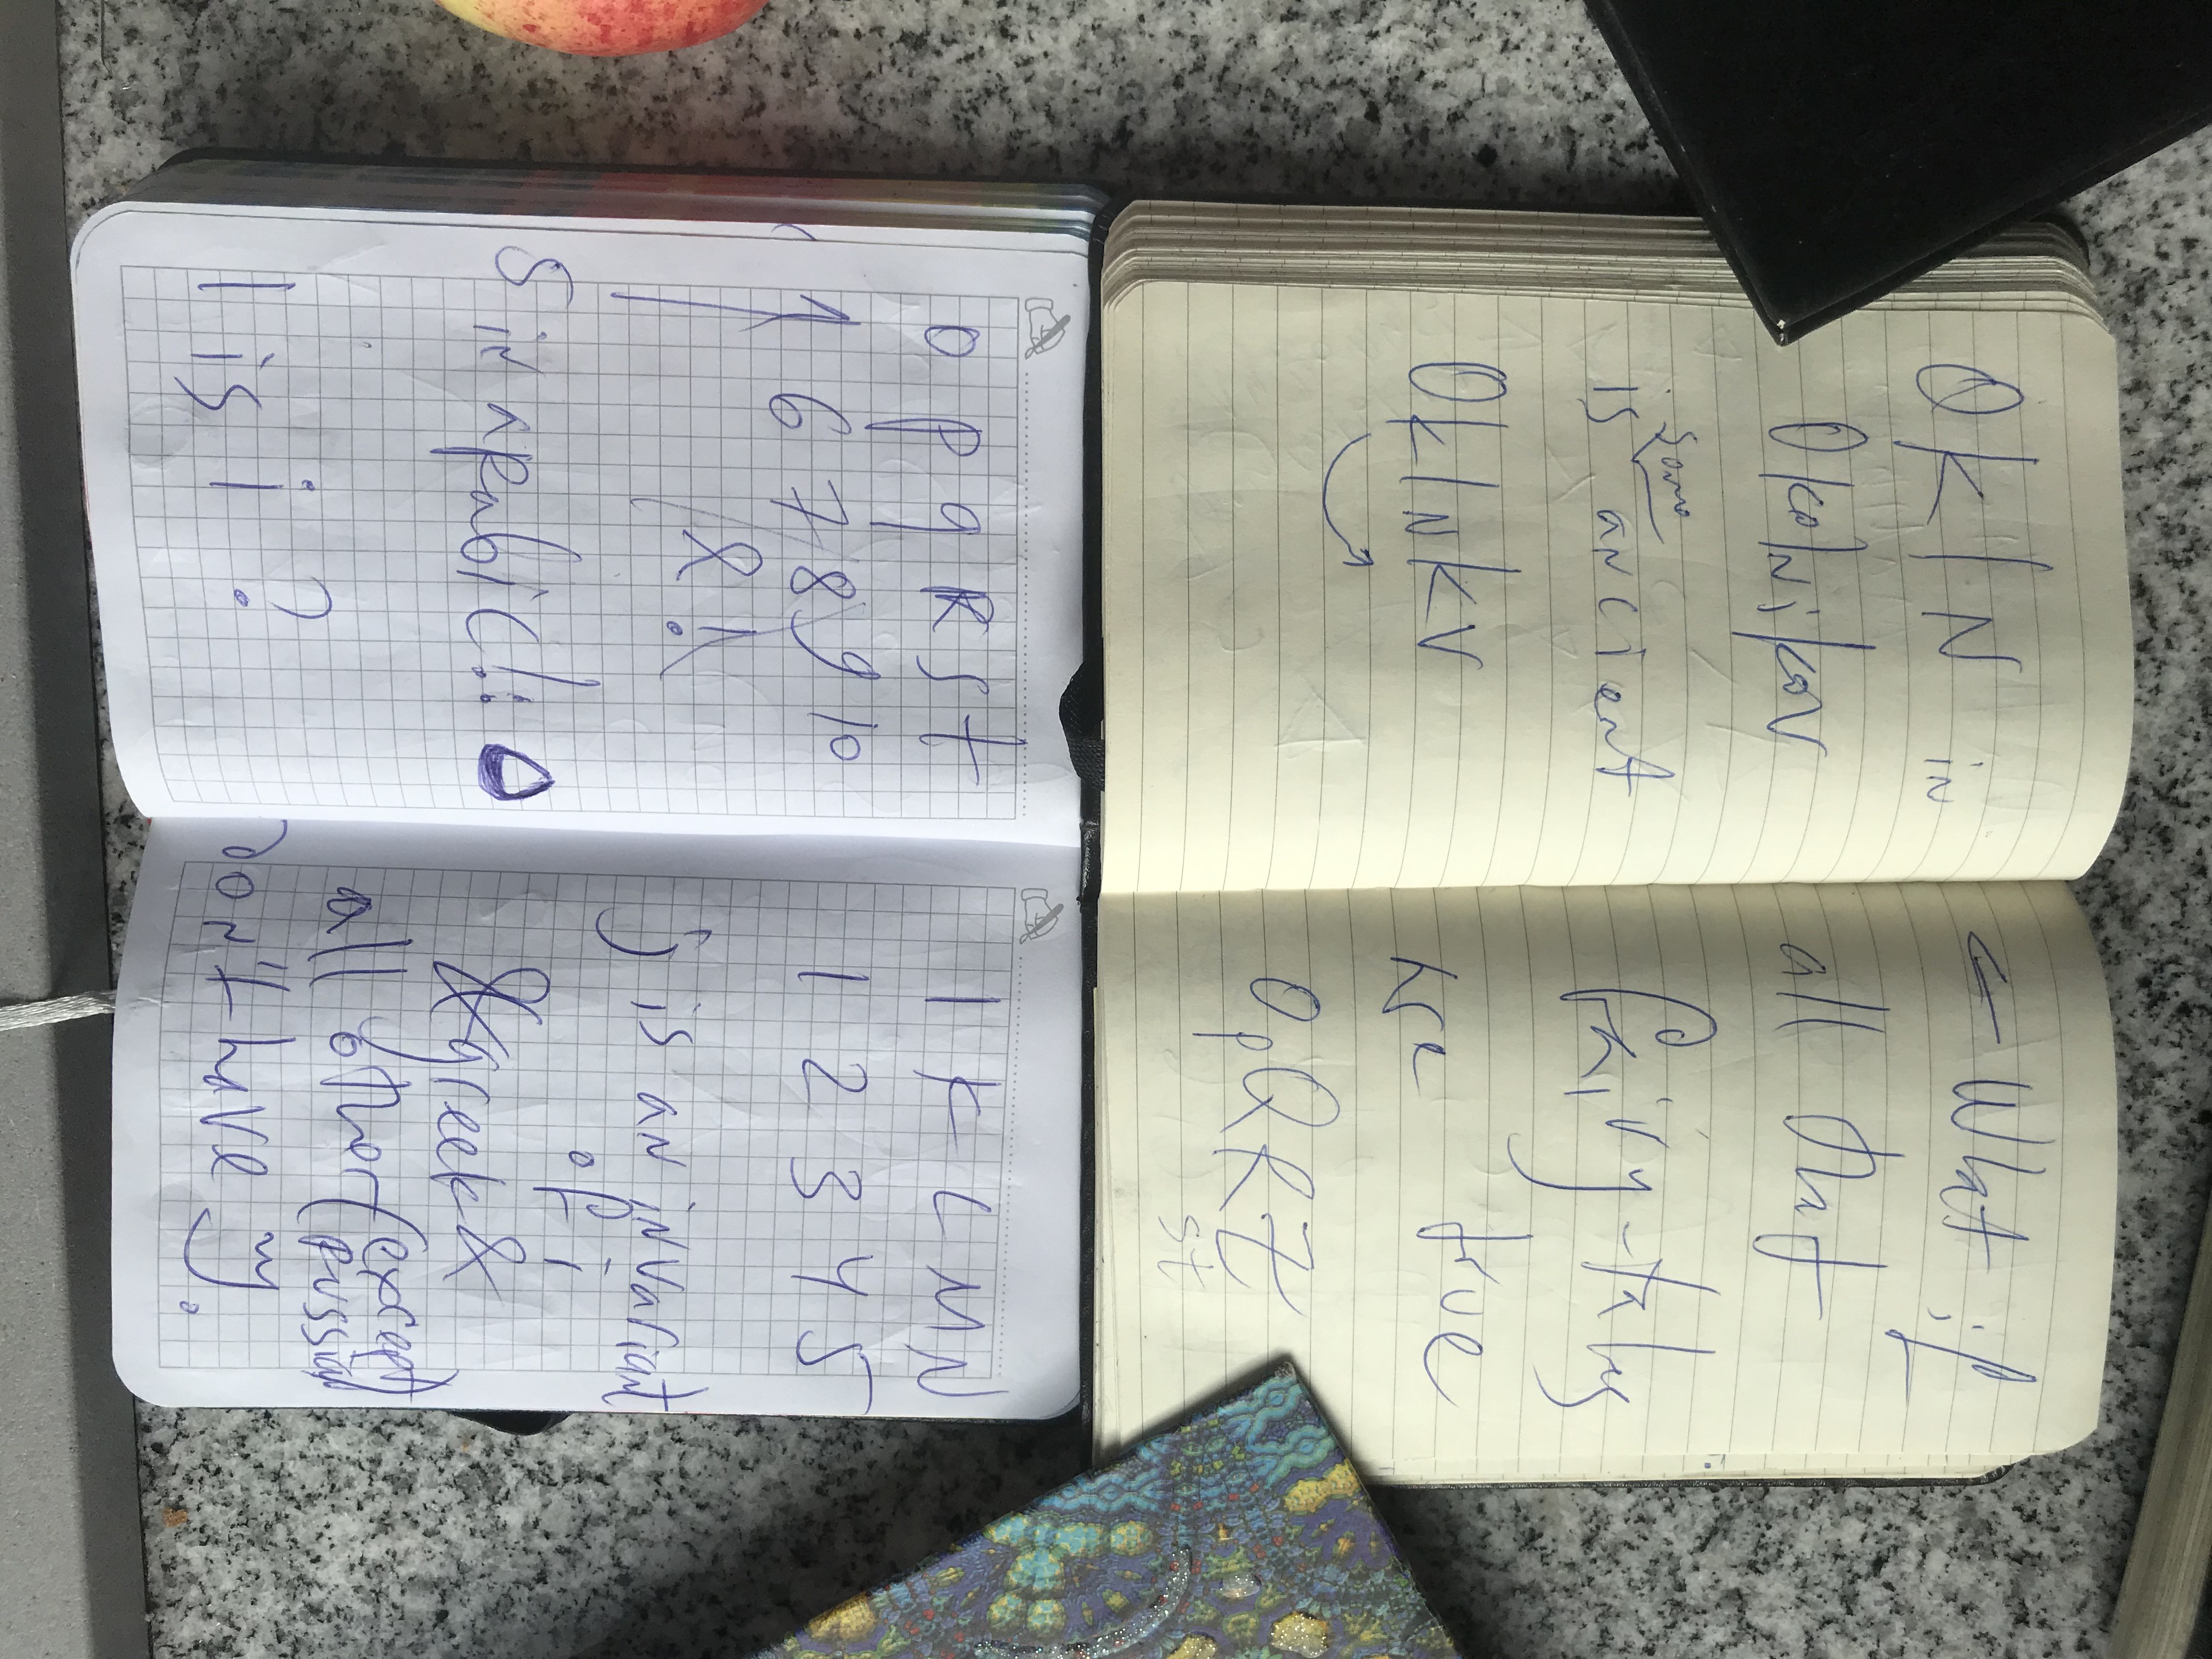 O K I N
in
Okolnikov
some
is ancient
OklNKV
← What if
all that
fairy-tales
are true
O P Q R Z
st
o p q R S t
1 6 7 8 9 10
&!
5 in arabic!: 0
1 is i ?
I K L M N
1 2 3 4 5
j is an invariant
of i
& greek &
all other (except
russian)
don't have y.